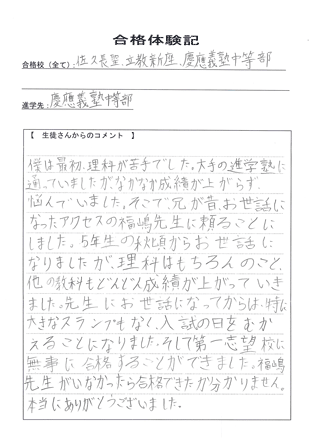 合格体験記
合格校（全て）：佐久長聖、立教新座、慶應義塾中等部
進学先：慶應義塾中等部
【 生徒さんからのコメント 】
僕は最初、理科が苦手でした。大手の進学塾に
通っていましたが、なかなか成績が上がらず、
悩んでいました。そこで、兄が昔、お世話に
なったアクセスの福嶋先生に頼ることに
しました。5年生の秋頃からお世話に
なりましたが、理科はもちろんのこと、
他の教科もどんどん成績が上がっていき
ました。先生にお世話になってからは、特に
大きなスランプもなく、入試の日をむか
えることになりました。そして第一志望校に
無事に合格することができました。福嶋
先生がいなかったら合格できたか分かりません。
本当にありがとうございました。